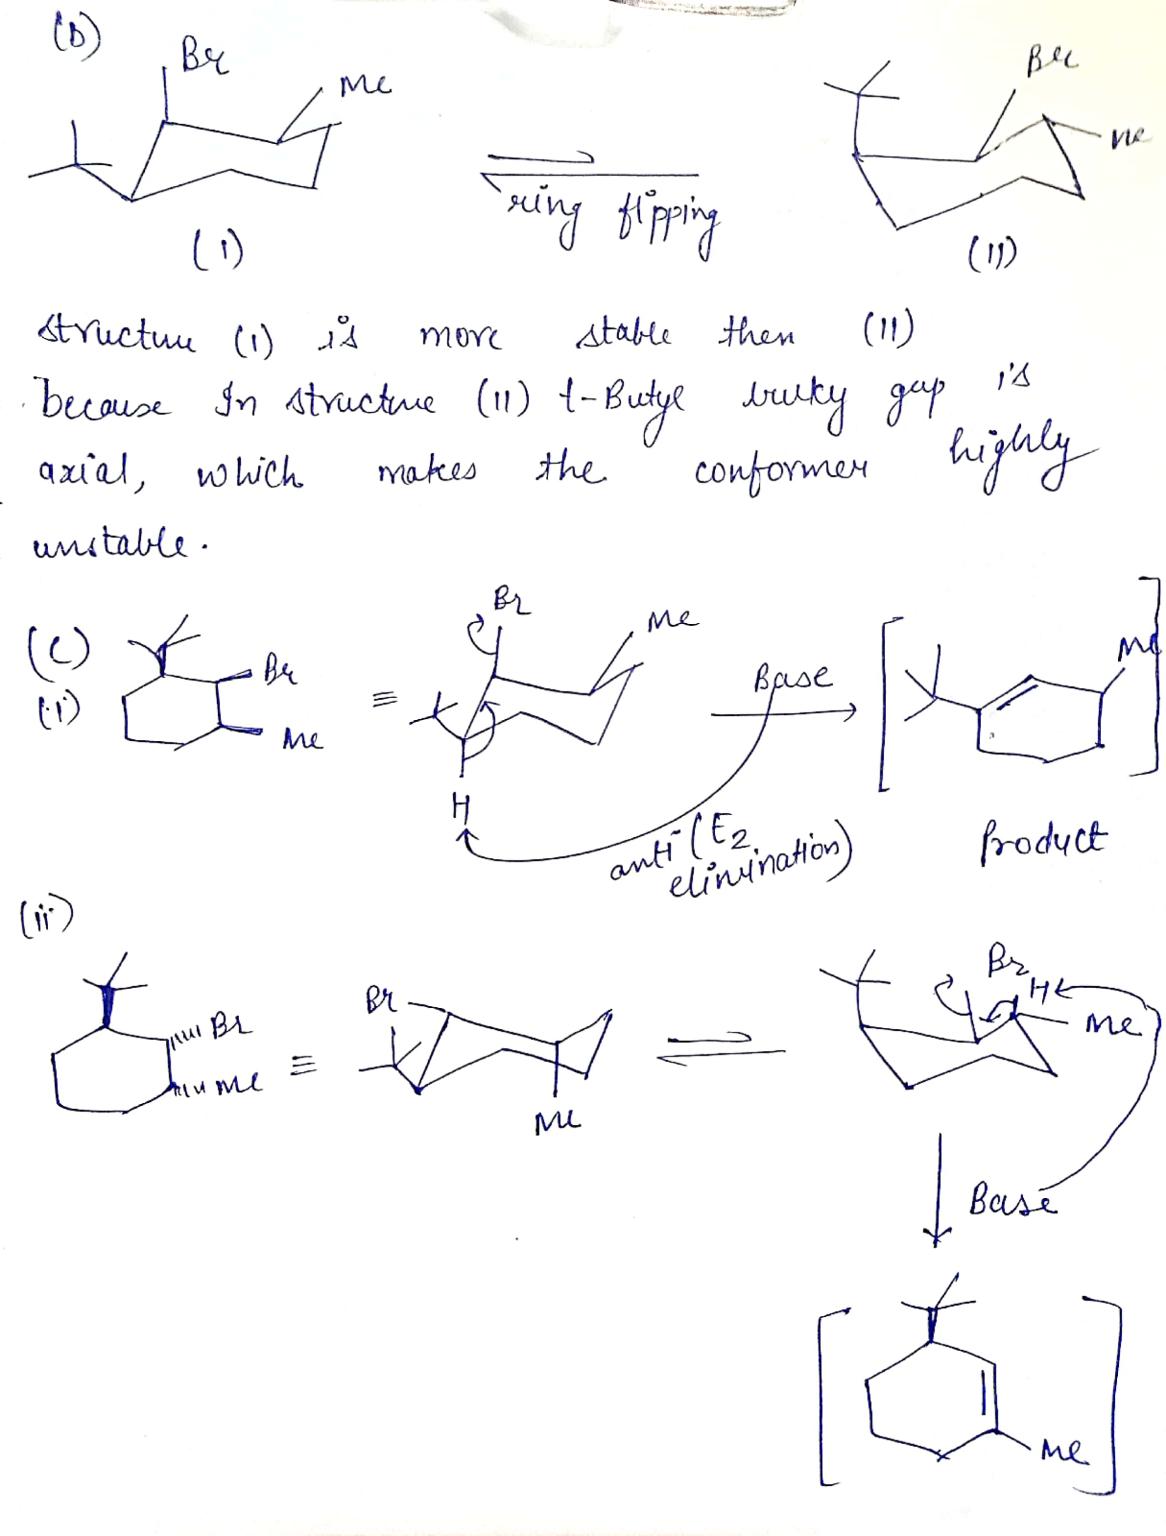 (b)
Br
Me
Br
Me
ring flipping
(I)
(II)
structure (I) is more stable then (II)
because In structure (II) t-Butyl bulky gup is
axial, which makes the conformer highly
unstable.
(C)
(i)
Br
Me
≡
Br
Me
H
Base
anti (E2
elimination)
Me
Product
(ii)
Br
Me
≡
Br
Me
Br
H
Me
Base
Me